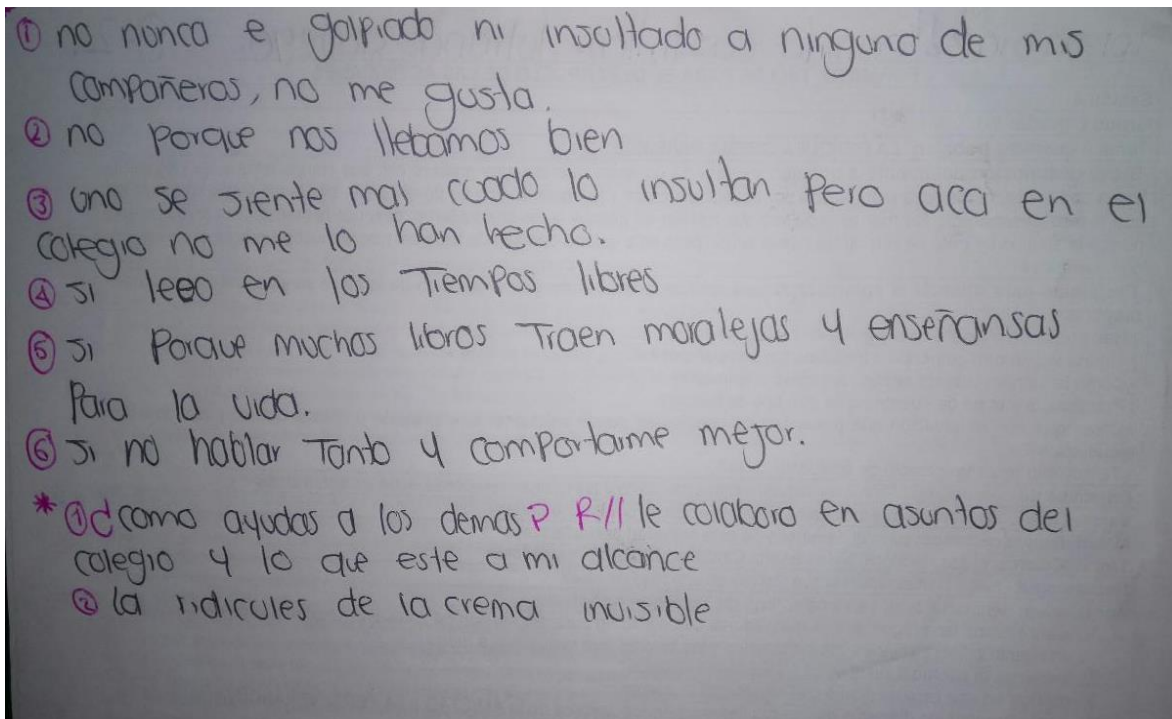 ① no nunca e golpiado ni insultado a ninguno de mis
compañeros, no me gusta.
② no porque nos llebamos bien
③ uno se siente mal cuado lo insultan Pero aca en el
colegio no me lo han hecho.
④ si leeo en los Tiempos libres
⑤ si Porque muchos libros Traen moralejas y enseñansas
Para la vida.
⑥ si no hablar Tanto y comportarme mejor.
* ① ¿como ayudas a los demas? R// le colaboro en asuntos del
colegio y lo que este a mi alcance
② la ridicules de la crema invisible